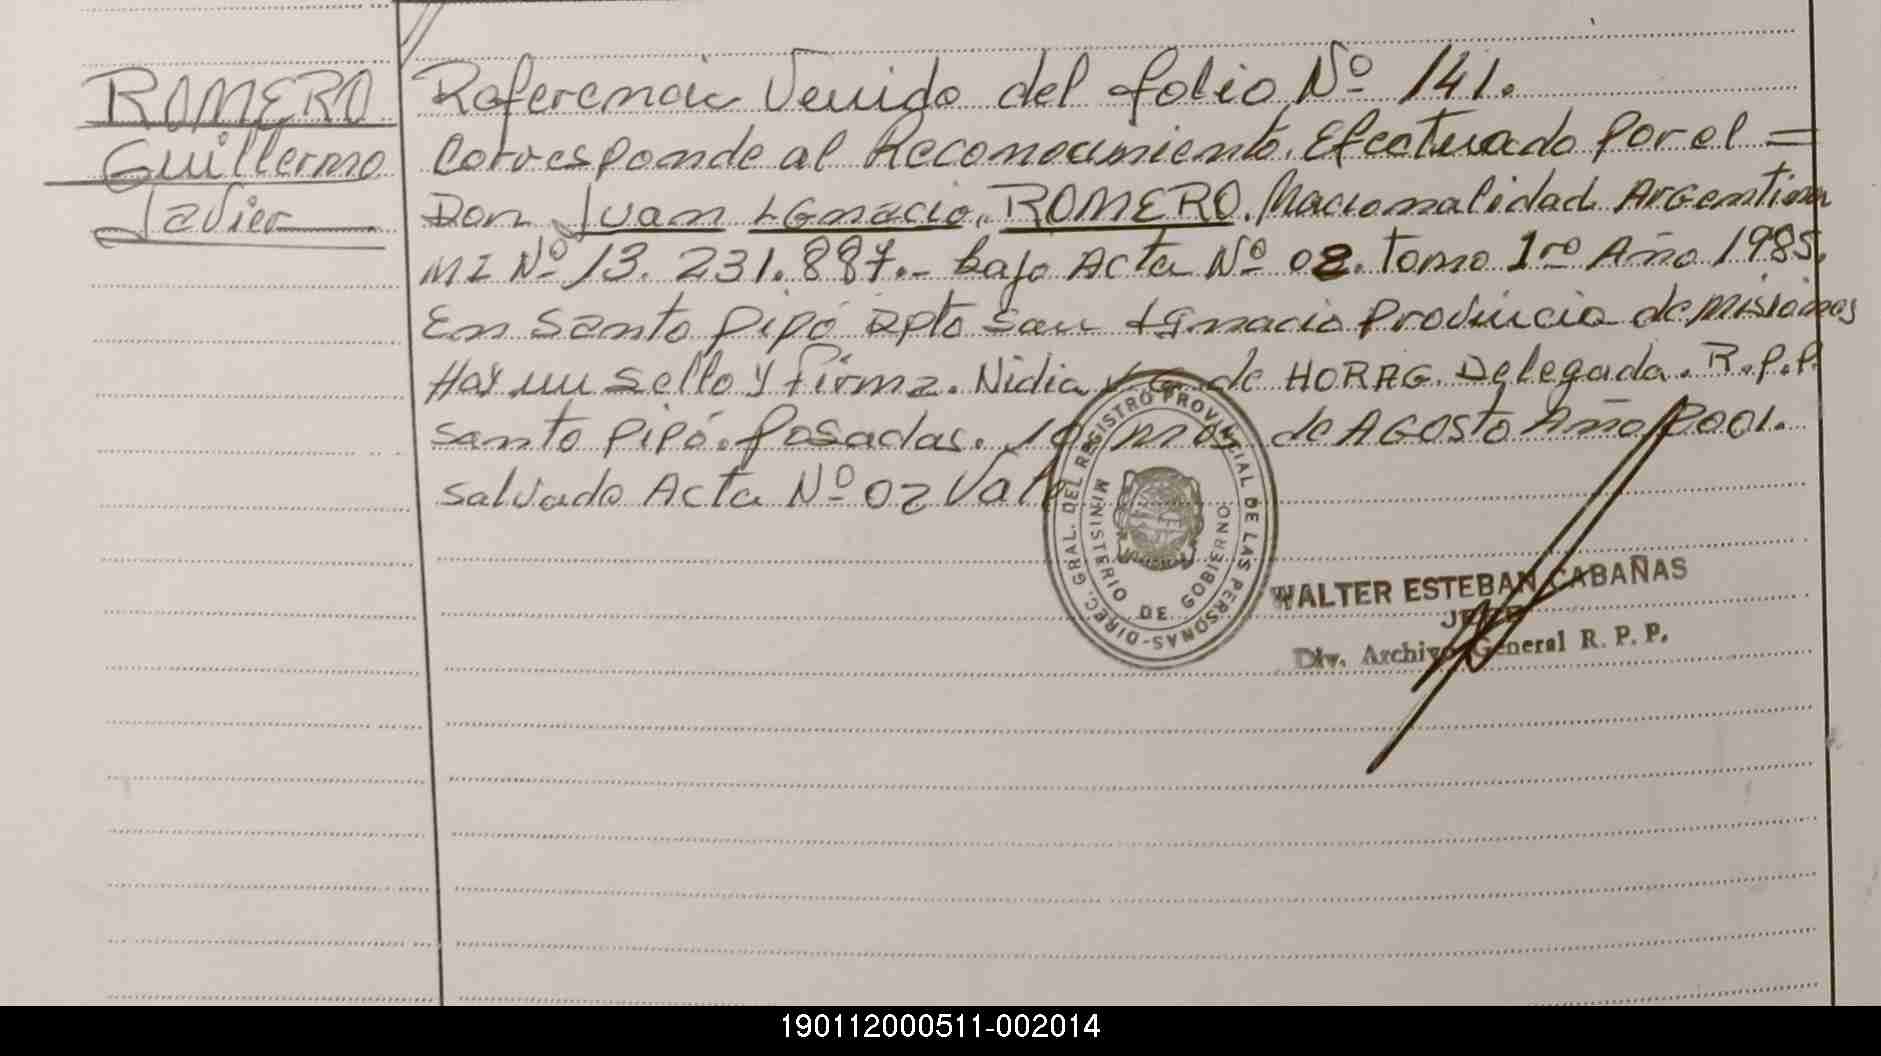 ROMERO
Guillermo
Javier
Referencia Venido del folio Nº 141.
Corresponde al Reconocimiento. Efectuado Por el =
Don Juan Ignacio. ROMERO. Nacionalidad Argentina
MI Nº 13. 231.887.- bajo Acta Nº 02. Tomo 1ro Año 1985.
En Santo Pipó Dpto San Ignacio Provincia de Misiones
Hay un Sello y firma. Nidia de HORAG. Delegada. R.P.P.
Santo Pipó. Posadas. de AGOSTO Año 2001.
Salvado Acta Nº 02 Vale
DIREC. GRAL. DEL REGISTRO PROVINCIAL DE LAS PERSONAS-
MINISTERIO DE GOBIERNO
WALTER ESTEBAN CABAÑAS
JEFE
Div. Archivo General R. P. P.
190112000511-002014